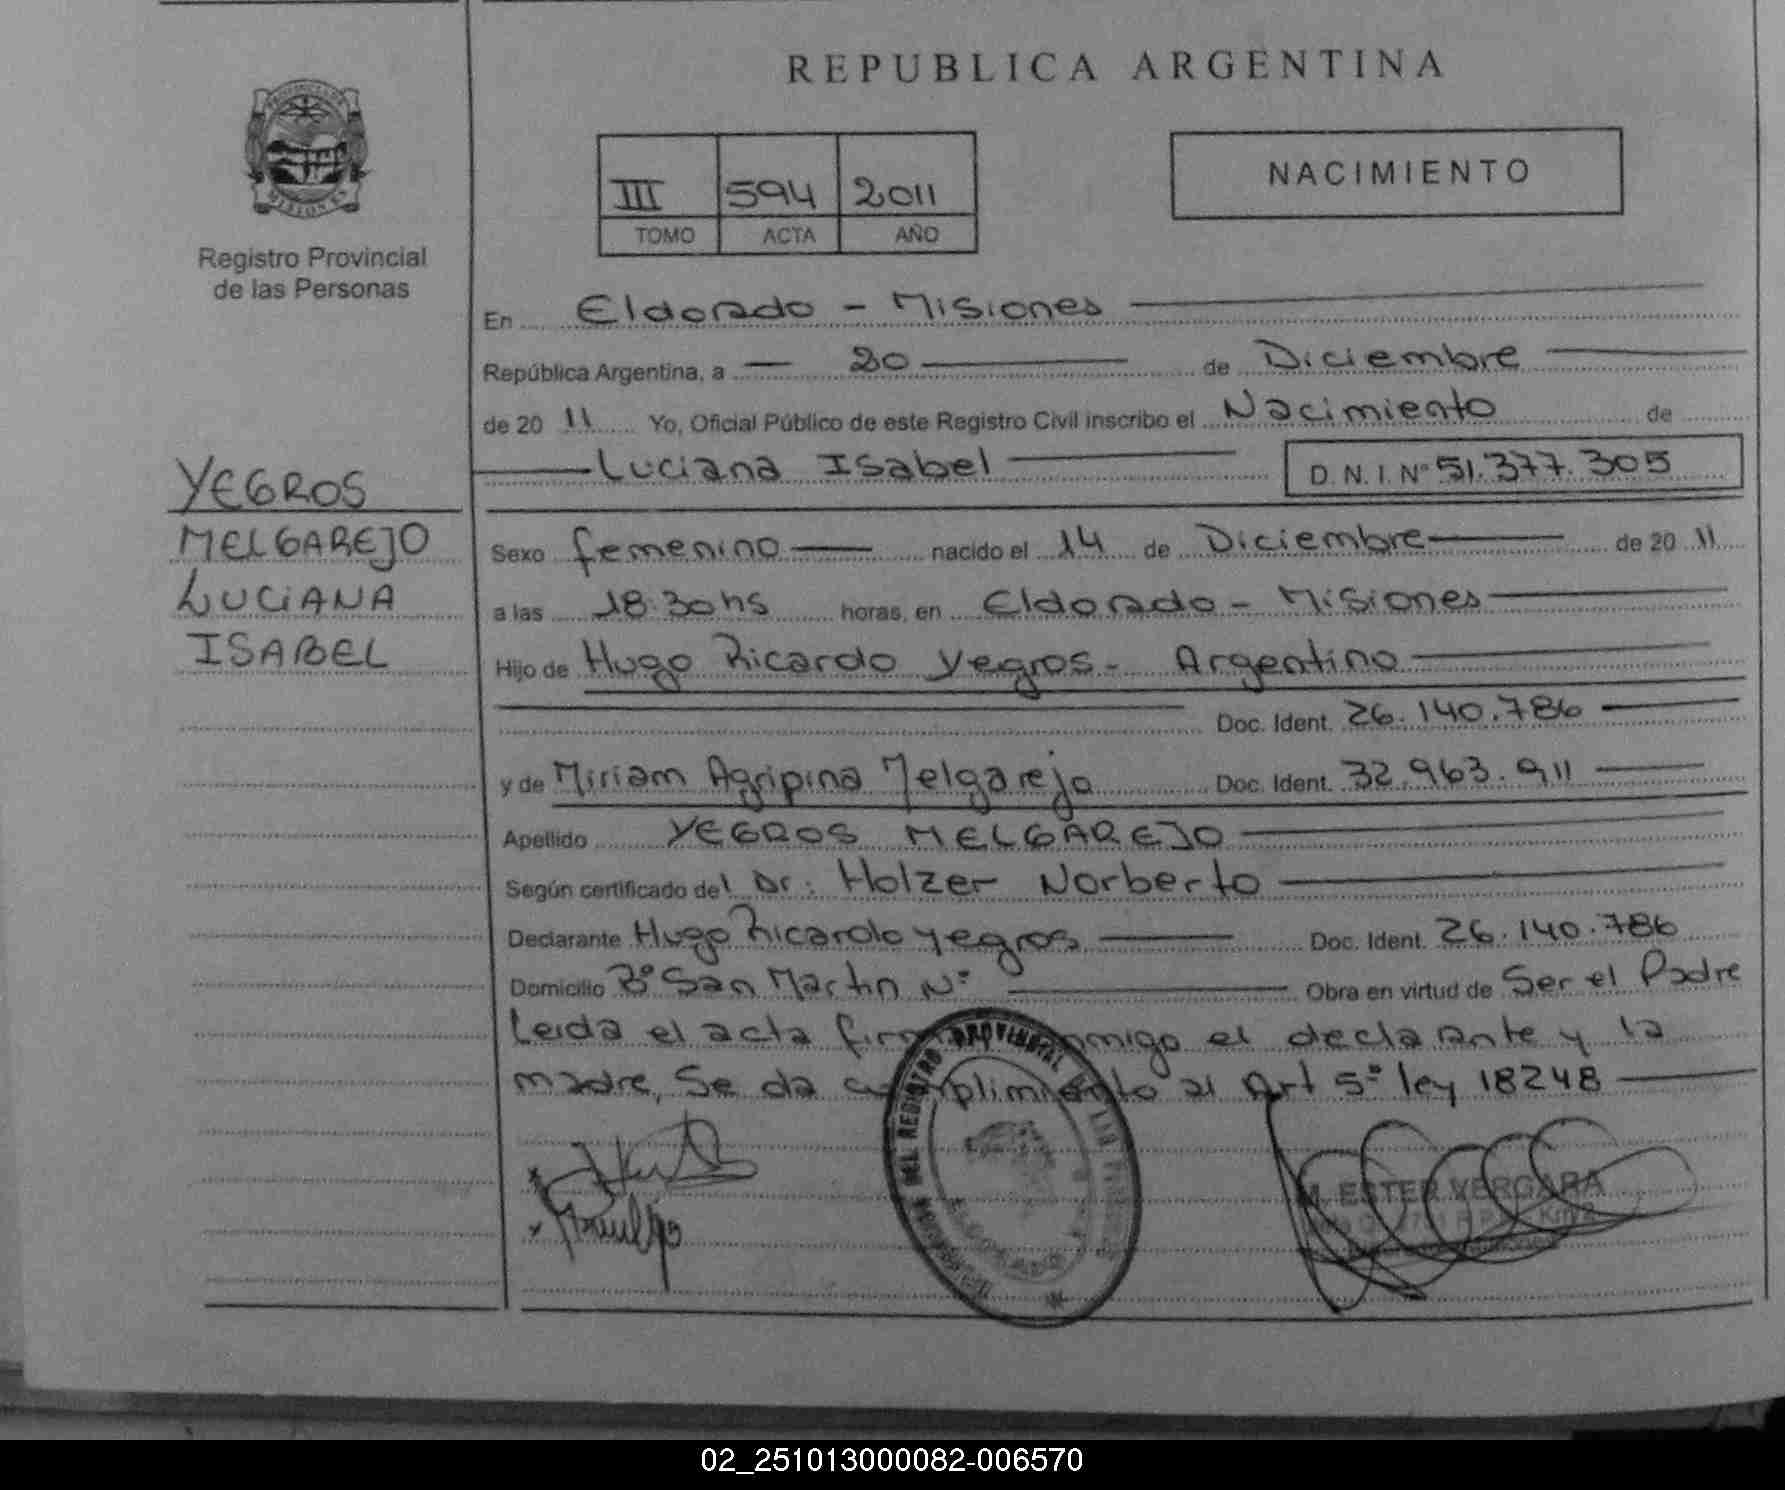 REPUBLICA ARGENTINA
Registro Provincial
de las Personas
III 594 2011
TOMO ACTA AÑO
NACIMIENTO
YEGROS
MELGAREJO
LUCIANA
ISABEL
En Eldorado - Misiones
República Argentina, a 20 de Diciembre
de 2011 Yo, Oficial Público de este Registro Civil inscribo el Nacimiento de
Luciana Isabel D.N.I. Nº 51.377.305
Sexo femenino nacido el 14 de Diciembre de 2011
a las 18:30 hs horas, en Eldorado - Misiones
Hijo de Hugo Ricardo Yegros - Argentino
Doc. Ident. 26.140.786
y de Miriam Agripina Melgarejo Doc. Ident. 32.963.911
Apellido YEGROS MELGAREJO
Según certificado del Dr: Holzer Norberto
Declarante Hugo Ricardo Yegros Doc. Ident. 26.140.786
Domicilio Bº San Martin Nº Obra en virtud de Ser el Padre
Leida el acta conmigo el declarante y la
madre, Se da cumplimiento al Art 5º ley 18248
DEL REGISTRO PROVINCIAL
ELDORADO
M. ESTER VERGARA
02_251013000082-006570